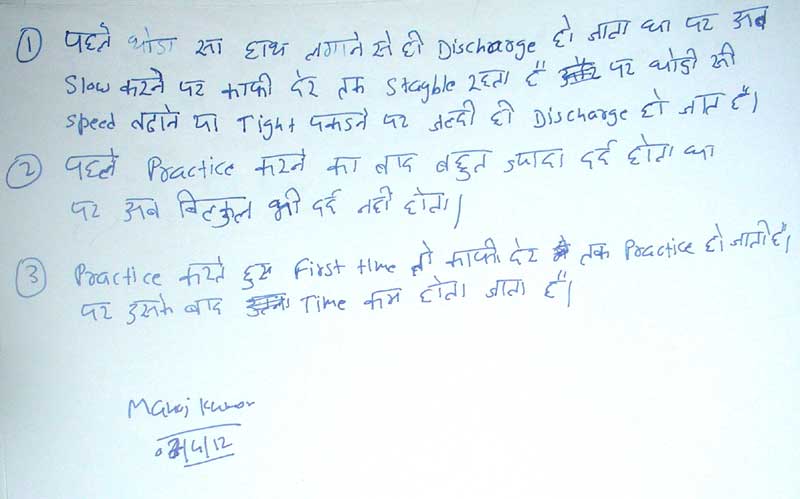 ① पहले थोडा सा हाथ लगाने से ही Discharge हो जाता था पर अब
Slow करने पर काफी देर तक Stayble रहता है पर थोडी सी
Speed बढाने या Tight पकडने पर जल्दी ही Discharge हो जाता है।
② पहले Practice करने का बाद बहुत ज्यादा दर्द होता था
पर अब बिलकुल भी दर्द नही होता।
③ Practice करते हुए First time तो काफी देर तक Practice हो जाती है।
पर उसके बाद Time कम होता जाता है।
Manoj Kumar
/4/12